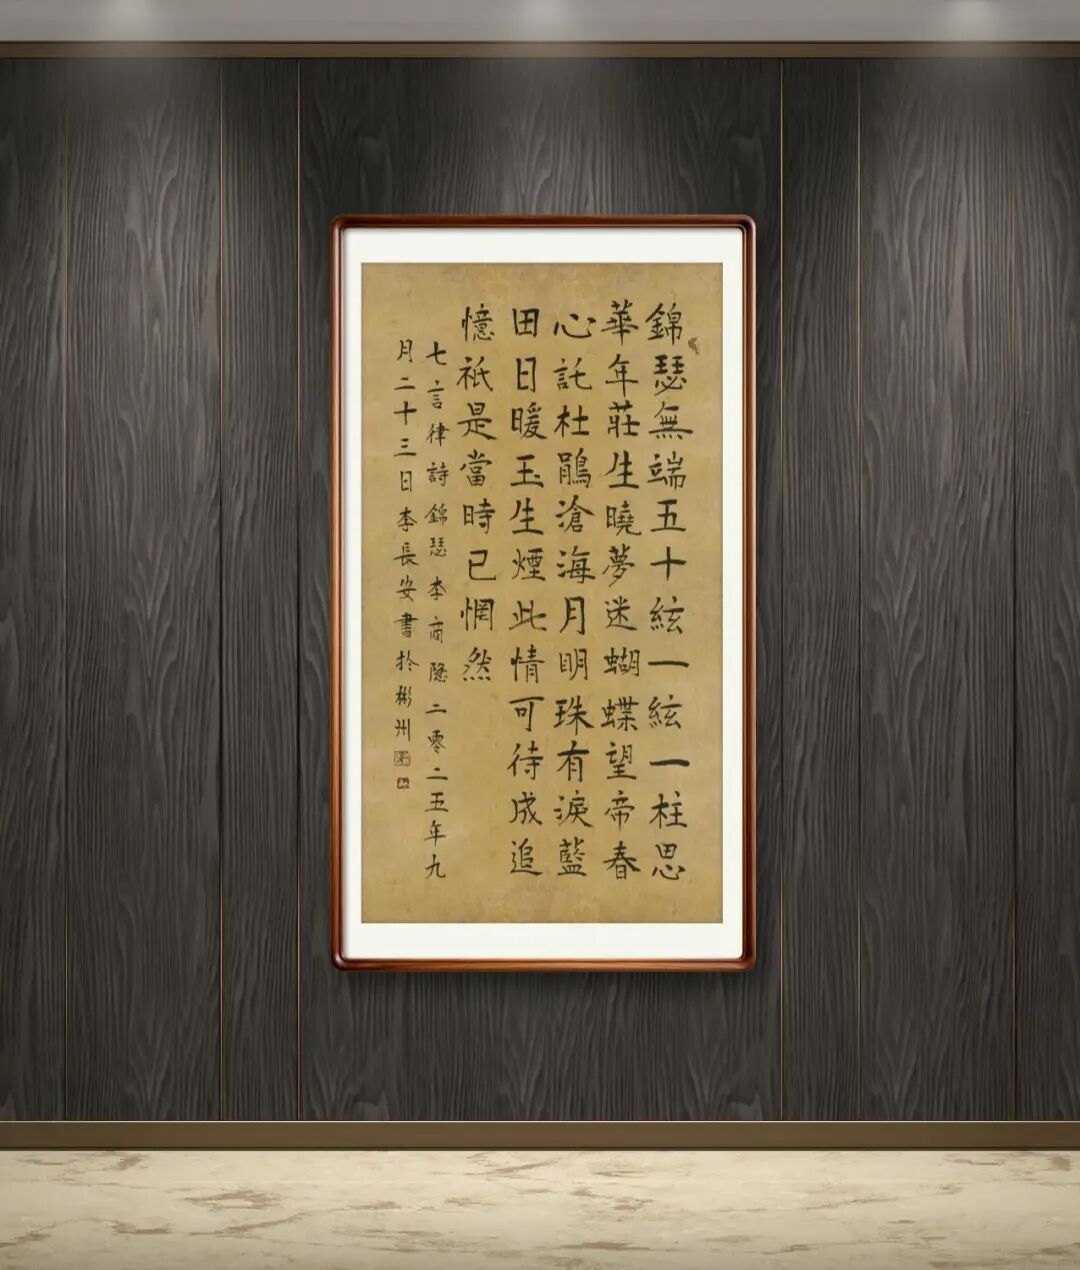 錦瑟無端五十絃一絃一柱思
華年莊生曉夢迷蝴蝶望帝春
心託杜鵑滄海月明珠有淚藍
田日暖玉生煙此情可待成追
憶祇是當時已惘然
七言律詩錦瑟李商隐二零二五年九
月二十三日李長安書於彬州